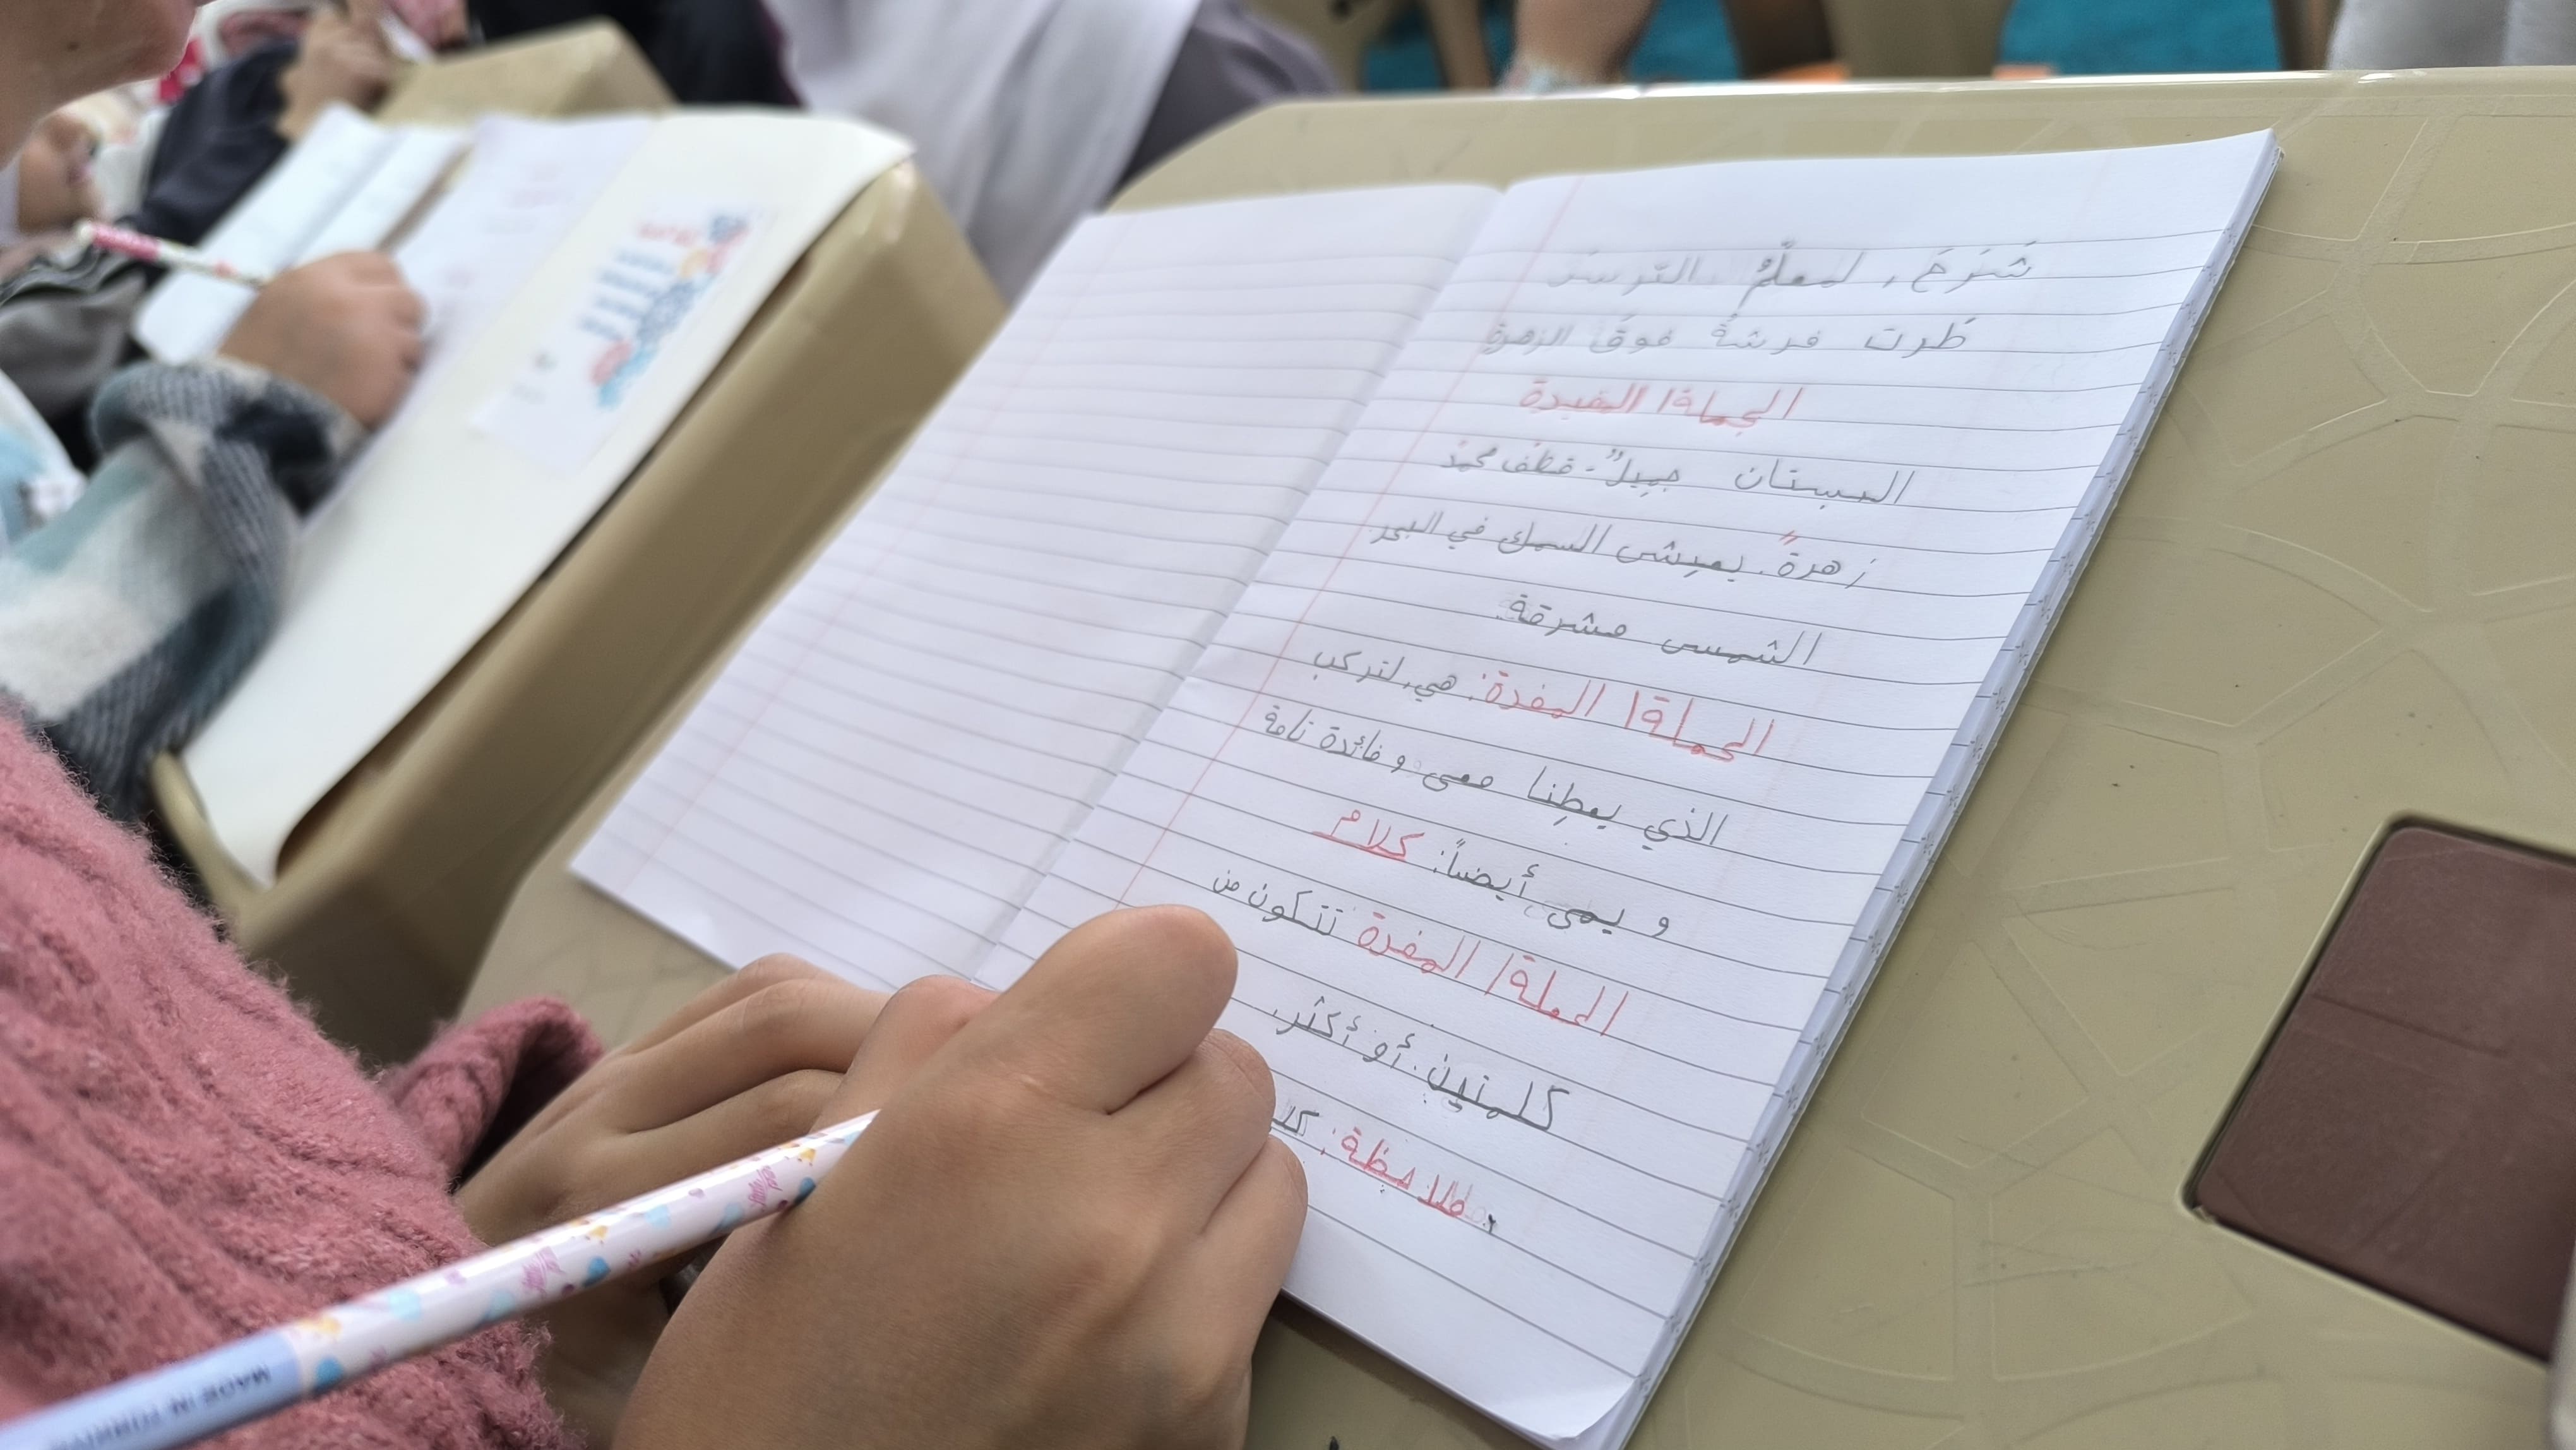 شَرَحَ لمعلّمُ الترسَ
طَرت فرشةُ فوقَ الزهرة
الجملة/ المفيدة
البستان جميلٌ - قطف محمدٌ
زهرةً. يعيش السمك في البحر
الشمس مشرقة.
الجملة/ المفدة: هي لتركب
الذي يعطِنا معى وفائدة تامة
و يمى أيضاً: كلام
الجملة/ المفدة تتكون من
كلمتين. أو أكثر.
ملاحظة: كل
MADE IN